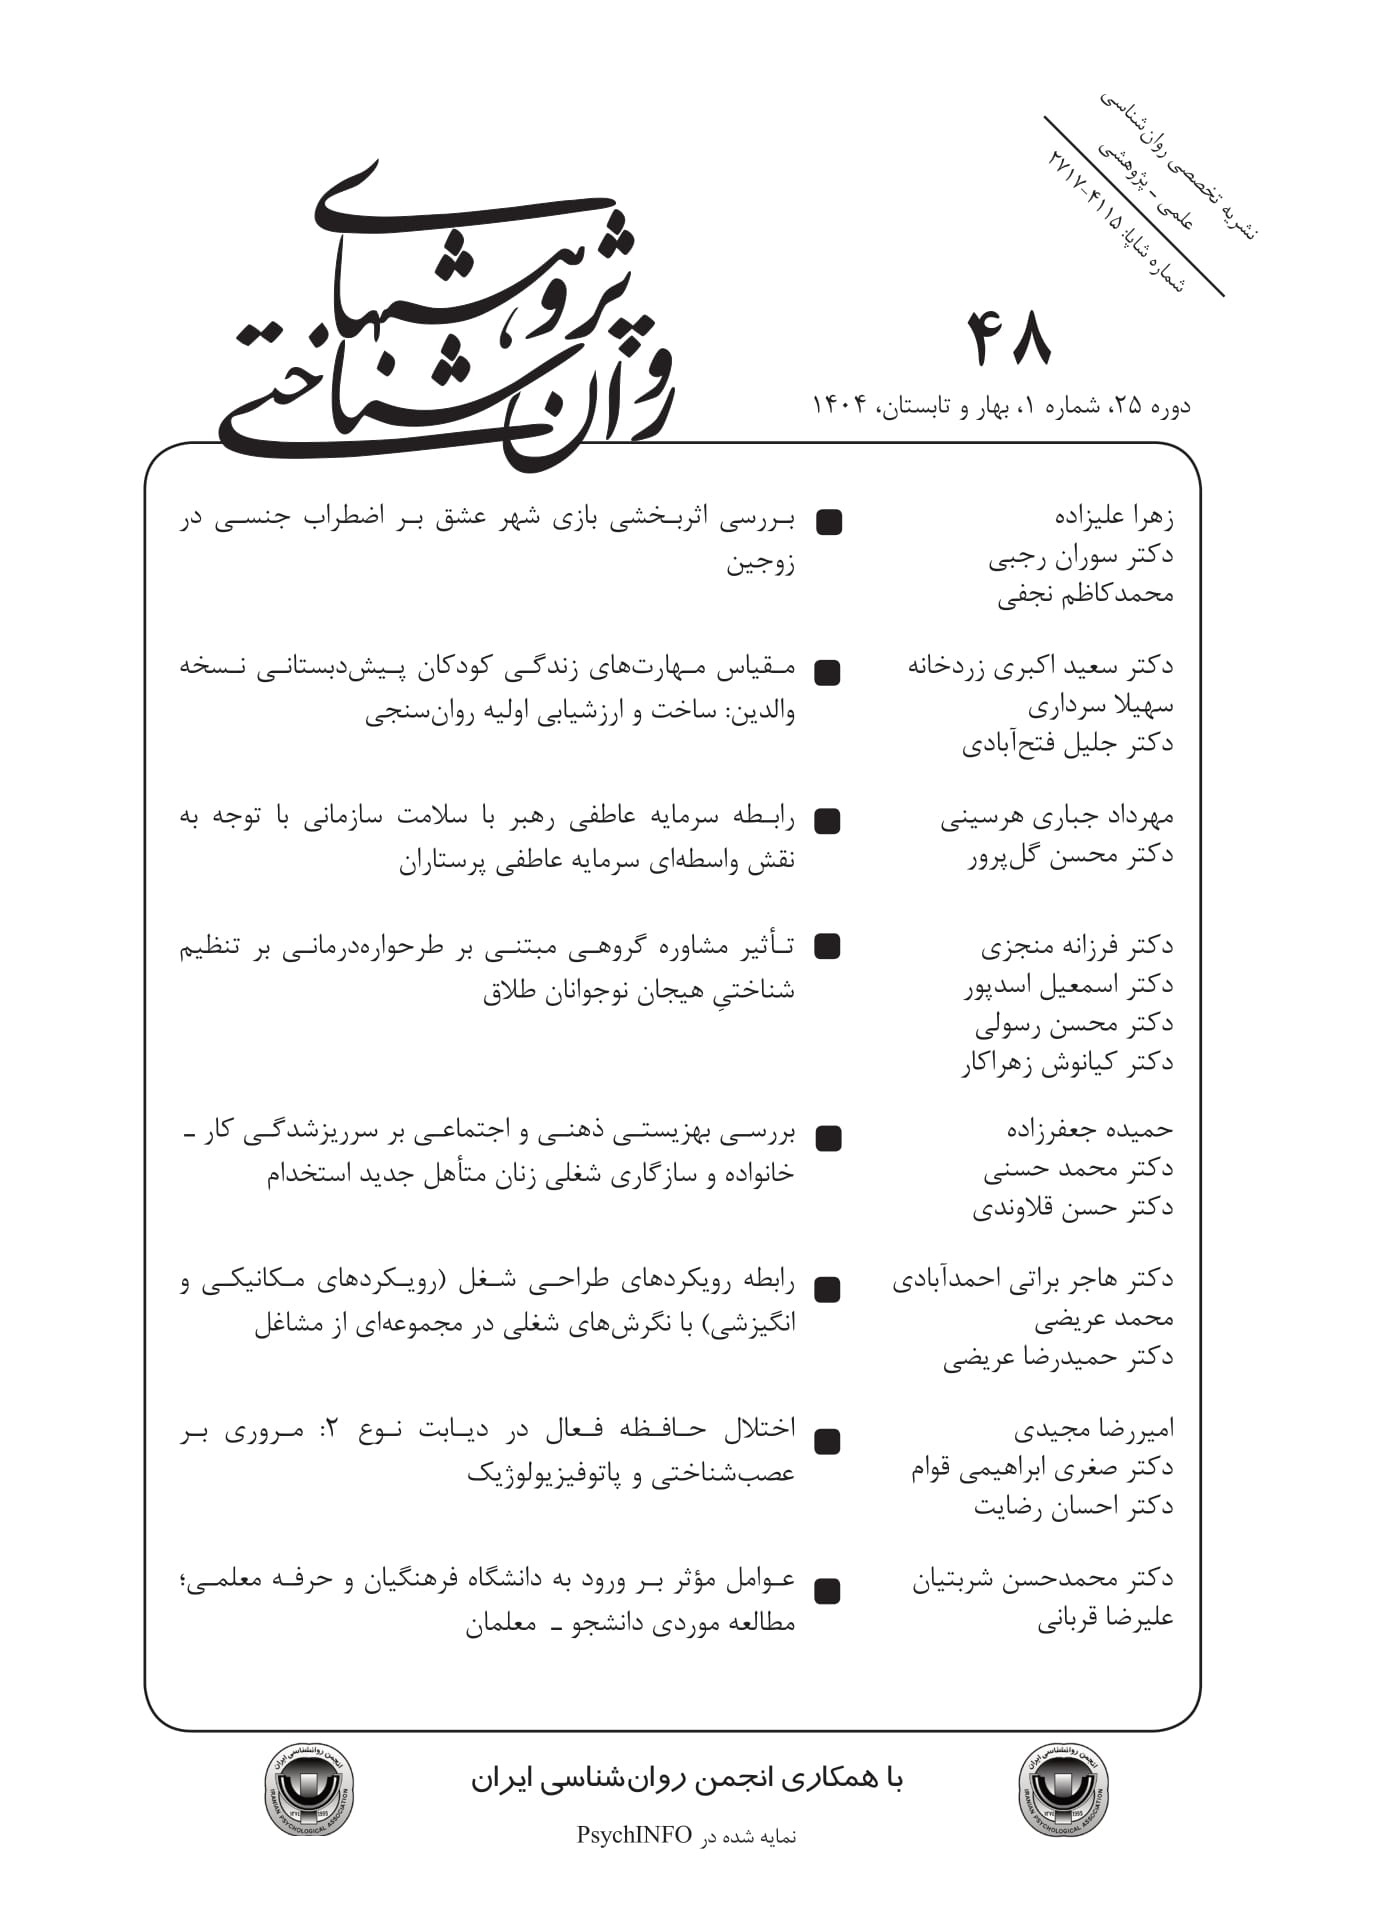 نشریه تخصصی روان‌شناسی
علمی - پژوهشی
شماره شاپا: ۴۱۱۵-۲۷۱۷
پژوهشهای
روان‌شناختی
۴۸
دوره ۲۵، شماره ۱، بهار و تابستان، ۱۴۰۴
زهرا علیزاده
دکتر سوران رجبی
محمدکاظم نجفی
بررسی اثربخشی بازی شهر عشق بر اضطراب جنسی در
زوجین
دکتر سعید اکبری زردخانه
سهیلا سرداری
دکتر جلیل فتح‌آبادی
مقیاس مهارت‌های زندگی کودکان پیش‌دبستانی نسخه
والدین: ساخت و ارزشیابی اولیه روان‌سنجی
مهرداد جباری هرسینی
دکتر محسن گل‌پرور
رابطه سرمایه عاطفی رهبر با سلامت سازمانی با توجه به
نقش واسطه‌ای سرمایه عاطفی پرستاران
دکتر فرزانه منجزی
دکتر اسمعیل اسدپور
دکتر محسن رسولی
دکتر کیانوش زهراکار
تأثیر مشاوره گروهی مبتنی بر طرحواره‌درمانی بر تنظیم
شناختیِ هیجان نوجوانان طلاق
حمیده جعفرزاده
دکتر محمد حسنی
دکتر حسن قلاوندی
بررسی بهزیستی ذهنی و اجتماعی بر سرریزشدگی کار -
خانواده و سازگاری شغلی زنان متأهل جدید استخدام
دکتر هاجر براتی احمدآبادی
محمد عریضی
دکتر حمیدرضا عریضی
رابطه رویکردهای طراحی شغل (رویکردهای مکانیکی و
انگیزشی) با نگرش‌های شغلی در مجموعه‌ای از مشاغل
امیررضا مجیدی
دکتر صغری ابراهیمی قوام
دکتر احسان رضایت
اختلال حافظه فعال در دیابت نوع ۲: مروری بر
عصب‌شناختی و پاتوفیزیولوژیک
دکتر محمدحسن شربتیان
علیرضا قربانی
عوامل مؤثر بر ورود به دانشگاه فرهنگیان و حرفه معلمی؛
مطالعه موردی دانشجو - معلمان
انجمن روانشناسی ایران
۱۳۷۴ 1995
IRANIAN PSYCHOLOGICAL ASSOCIATION
با همکاری انجمن روان‌شناسی ایران
انجمن روانشناسی ایران
۱۳۷۴ 1995
IRANIAN PSYCHOLOGICAL ASSOCIATION
نمایه شده در PsychINFO